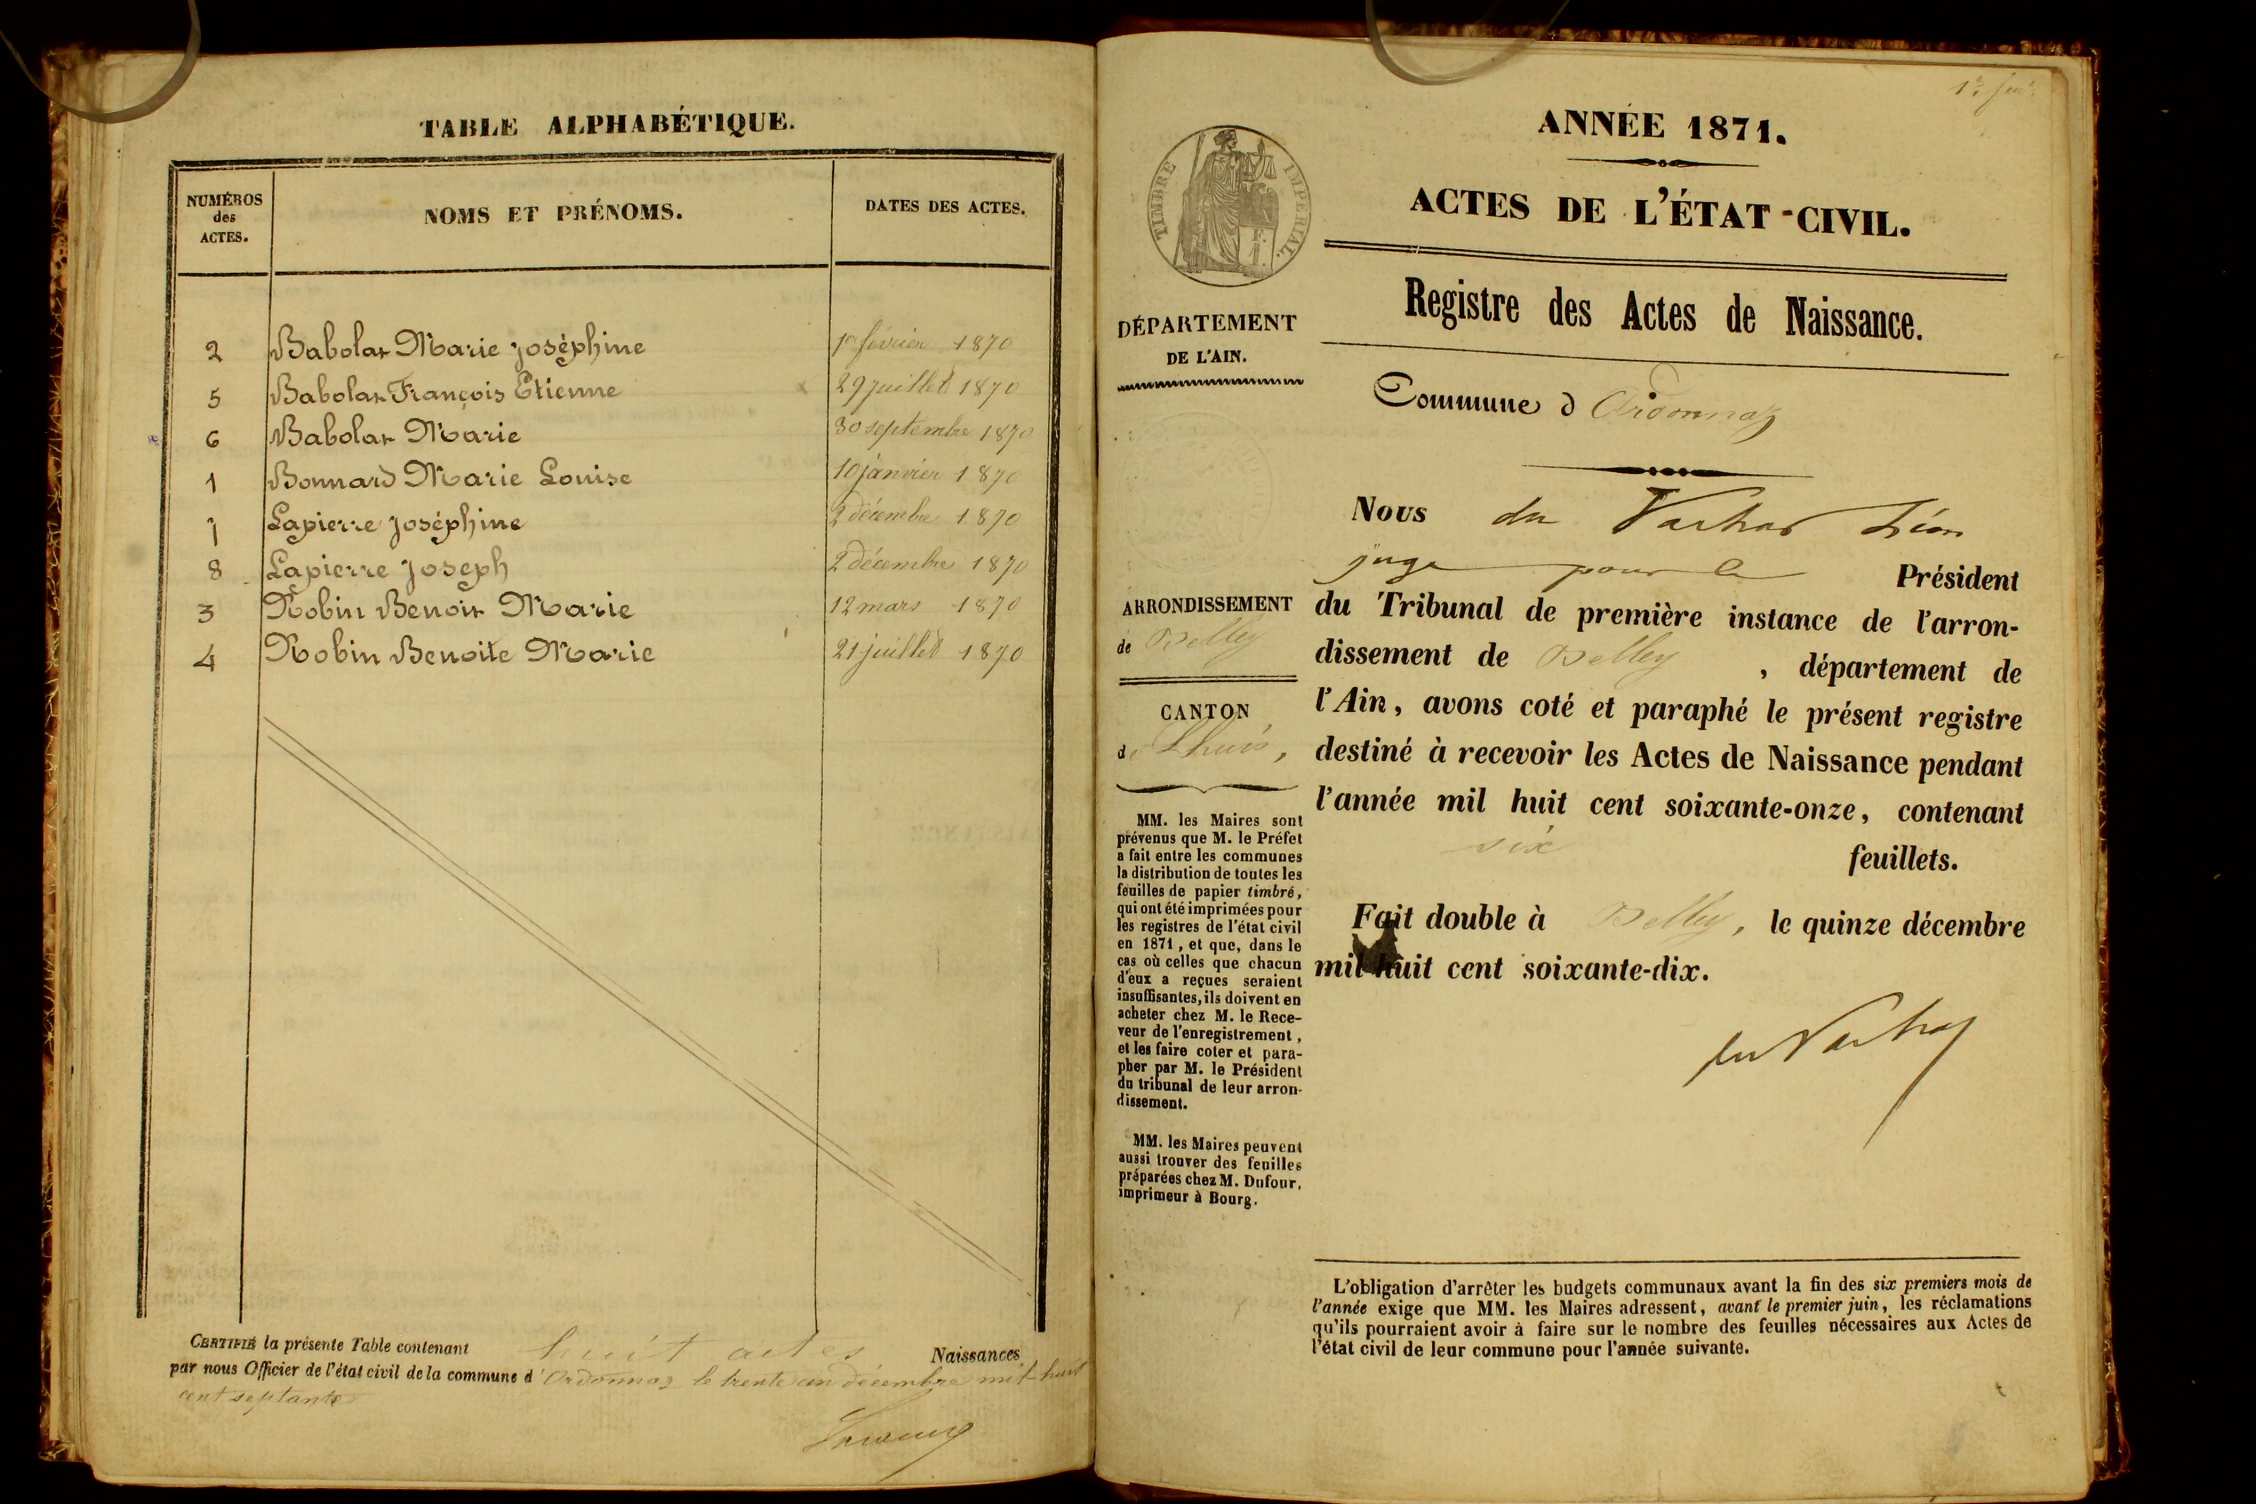 TABLE ALPHABÉTIQUE.
NUMÉROS
des
ACTES.
NOMS ET PRÉNOMS.
DATES DES ACTES.
2 Babolat Marie Joséphine 1er février 1870
5 Babolat François Etienne 29 juillet 1870
6 Babolat Marie 30 septembre 1870
1 Bonnard Marie Louise 10 janvier 1870
7 Lapierre Joséphine 2 décembre 1870
8 Lapierre Joseph 2 décembre 1870
3 Robin Benoit Marie 12 mars 1870
4 Robin Benoite Marie 21 juillet 1870
CERTIFIÉ la présente Table contenant huit actes Naissances
par nous Officier de l'état civil de la commune d'Ordonnaz le trente un décembre mil huit
cent septante
ANNÉE 1871.
ACTES DE L'ÉTAT-CIVIL.
TIMBRE IMPÉRIAL.
Registre des Actes de Naissance.
DÉPARTEMENT
DE L'AIN.
Commune d Ordonnaz
ARRONDISSEMENT
de Belley
CANTON
de Lhuis,
MM. les Maires sont
prévenus que M. le Préfet
a fait entre les communes
la distribution de toutes les
feuilles de papier timbré,
qui ont été imprimées pour
les registres de l'état civil
en 1871, et que, dans le
cas où celles que chacun
d'eux a reçues seraient
insuffisantes, ils doivent en
acheter chez M. le Rece-
veur de l'enregistrement,
et les faire coter et para-
pher par M. le Président
du tribunal de leur arron-
dissement.
MM. les Maires peuvent
aussi trouver des feuilles
préparées chez M. Dufour,
imprimeur à Bourg.
Nous du Vachat Léon
juge pour le Président
du Tribunal de première instance de l'arron-
dissement de Belley, département de
l'Ain, avons coté et paraphé le présent registre
destiné à recevoir les Actes de Naissance pendant
l'année mil huit cent soixante-onze, contenant
six feuillets.
Fait double à Belley, le quinze décembre
mil huit cent soixante-dix.
du Vachat
L'obligation d'arrêter les budgets communaux avant la fin des six premiers mois de
l'année exige que MM. les Maires adressent, avant le premier juin, les réclamations
qu'ils pourraient avoir à faire sur le nombre des feuilles nécessaires aux Actes de
l'état civil de leur commune pour l'année suivante.